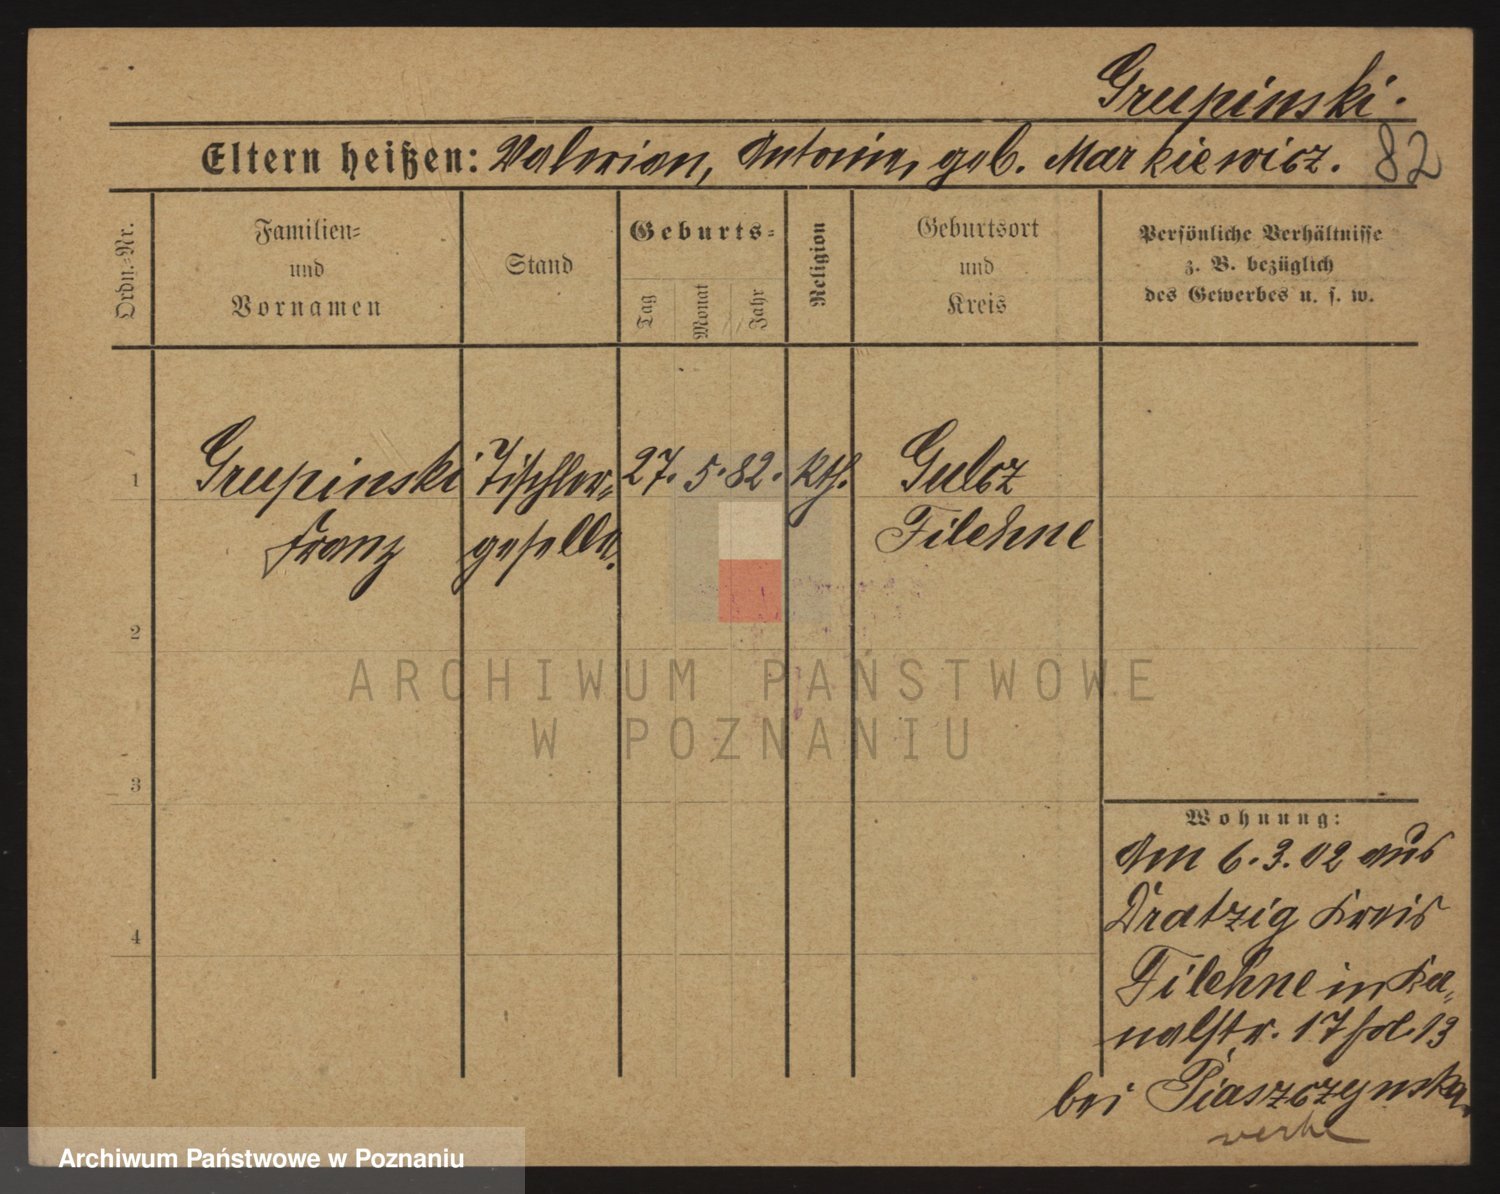 Grupinski.
Eltern heißen: Valerian, Antonie, geb. Markiewicz. 82
Ordn.-Nr.
Familien-
und
Vornamen
Stand
Geburts-
Tag
Monat
Jahr
Religion
Geburtsort
und
Kreis
Persönliche Verhältnisse
z. B. bezüglich
des Gewerbes u. s. w.
1 Grupinski Tischler- 27. 5. 82. kth. Gulcz
Franz geselle. Filehne
2
ARCHIWUM PAŃSTWOWE
W POZNANIU
3
Wohnung:
Am 6.3.02 aus
Dratzig Kreis
4
Filehne in Ka-
nalstr. 17 fol. 13
bei Piaszczynska
Archiwum Państwowe w Poznaniu